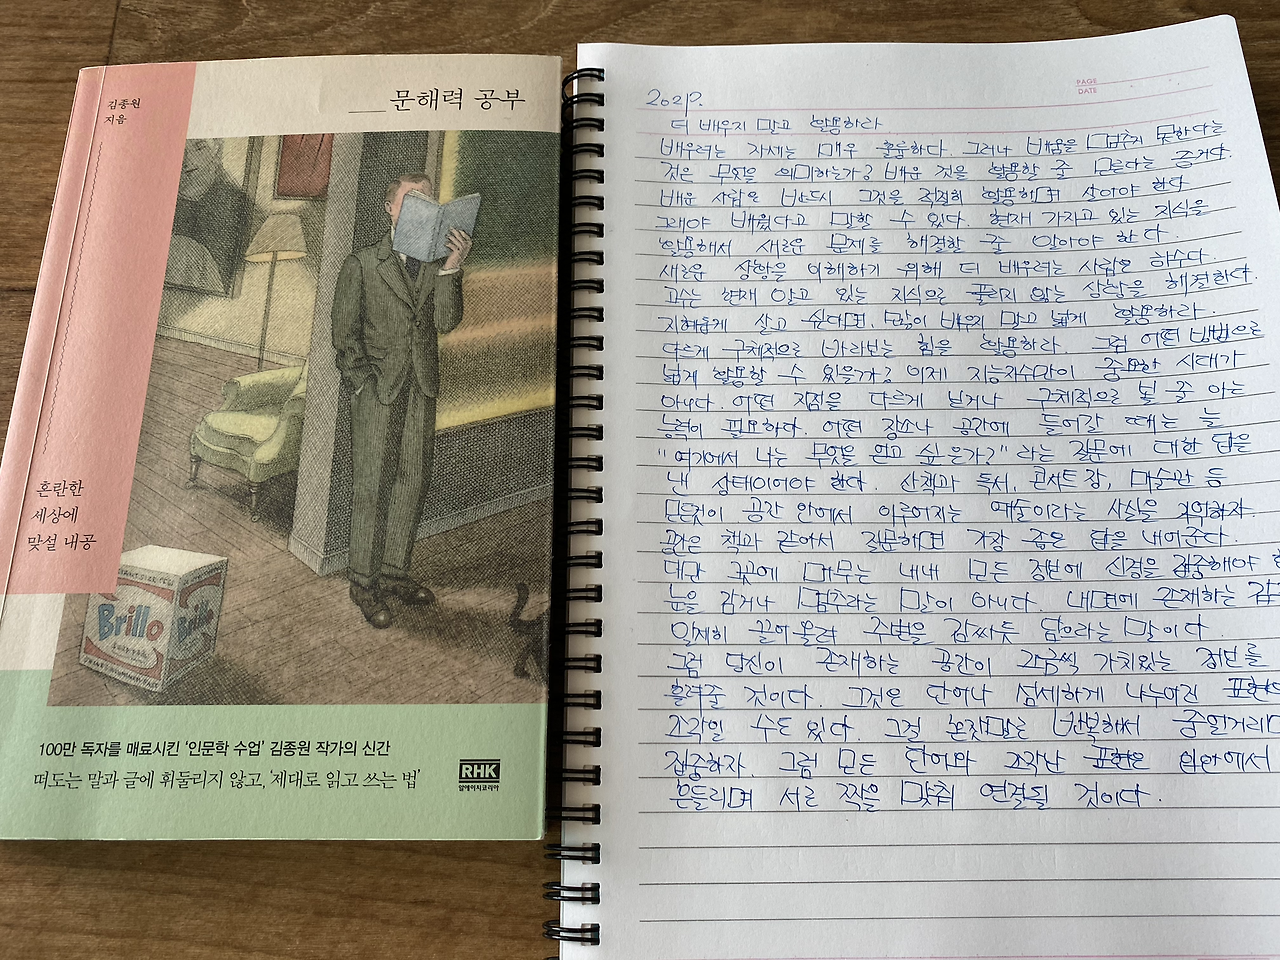 김종원
지음
문해력 공부
혼란한
세상에
맞설 내공
Brillo
Brillo
100만 독자를 매료시킨 '인문학 수업' 김종원 작가의 신간
떠도는 말과 글에 휘둘리지 않고, '제대로 읽고 쓰는 법'
RHK
알에이치코리아
PAGE
DATE
더 배우지 말고 활용하라
배우려는 자세는 매우 훌륭하다. 그러나 배움을 멈추지 못한다는
것은 무엇을 의미하는가? 배운 것을 활용할 줄 모른다는 증거다.
배운 사람은 반드시 그것을 적절히 활용하며 살아야 한다
그래야 배웠다고 말할 수 있다. 현재 가지고 있는 지식을
활용해서 새로운 문제를 해결할 줄 알아야 한다.
새로운 상황을 이해하기 위해 더 배우려는 사람은 하수다.
고수는 현재 알고 있는 지식으로 풀리지 않는 상황을 해결한다.
지혜롭게 살고 싶다면, 많이 배우지 말고 넓게 활용하라.
다르게 구체적으로 바라보는 힘을 활용하라. 그럼 어떤 방법으로
넓게 활용할 수 있을까? 이제 지능지수만이 중요한 시대가
아니다. 어떤 지점을 다르게 보거나 구체적으로 볼 줄 아는
능력이 필요하다. 어떤 장소나 공간에 들어갈 때는 늘
"여기에서 나는 무엇을 얻고 싶은가?" 라는 질문에 대한 답을
낸 상태이어야 한다. 산책과 독서, 콘서트장, 미술관 등
모든것이 공간 안에서 이루어지는 예술이라는 사실을 기억하자.
공간은 책과 같아서 질문하면 가장 좋은 답을 내어준다.
다만 그곳에 머무는 내내 모든 정보에 신경을 집중해야
눈을 감거나 멈추라는 말이 아니다. 내면에 존재하는
일제히 끌어올려 주변을 감싸듯 담으라는 말이다.
그럼 당신이 존재하는 공간이 조금씩 가치있는 정보를
흘려줄 것이다. 그것은 단어나 섬세하게 나누어진
조각일 수도 있다. 그걸 혼잣말로 반복해서 중얼거리며
집중하자. 그럼 모든 단어와 조각난 표현은 입안에서
흔들리며 서로 짝을 맞춰 연결될 것이다.